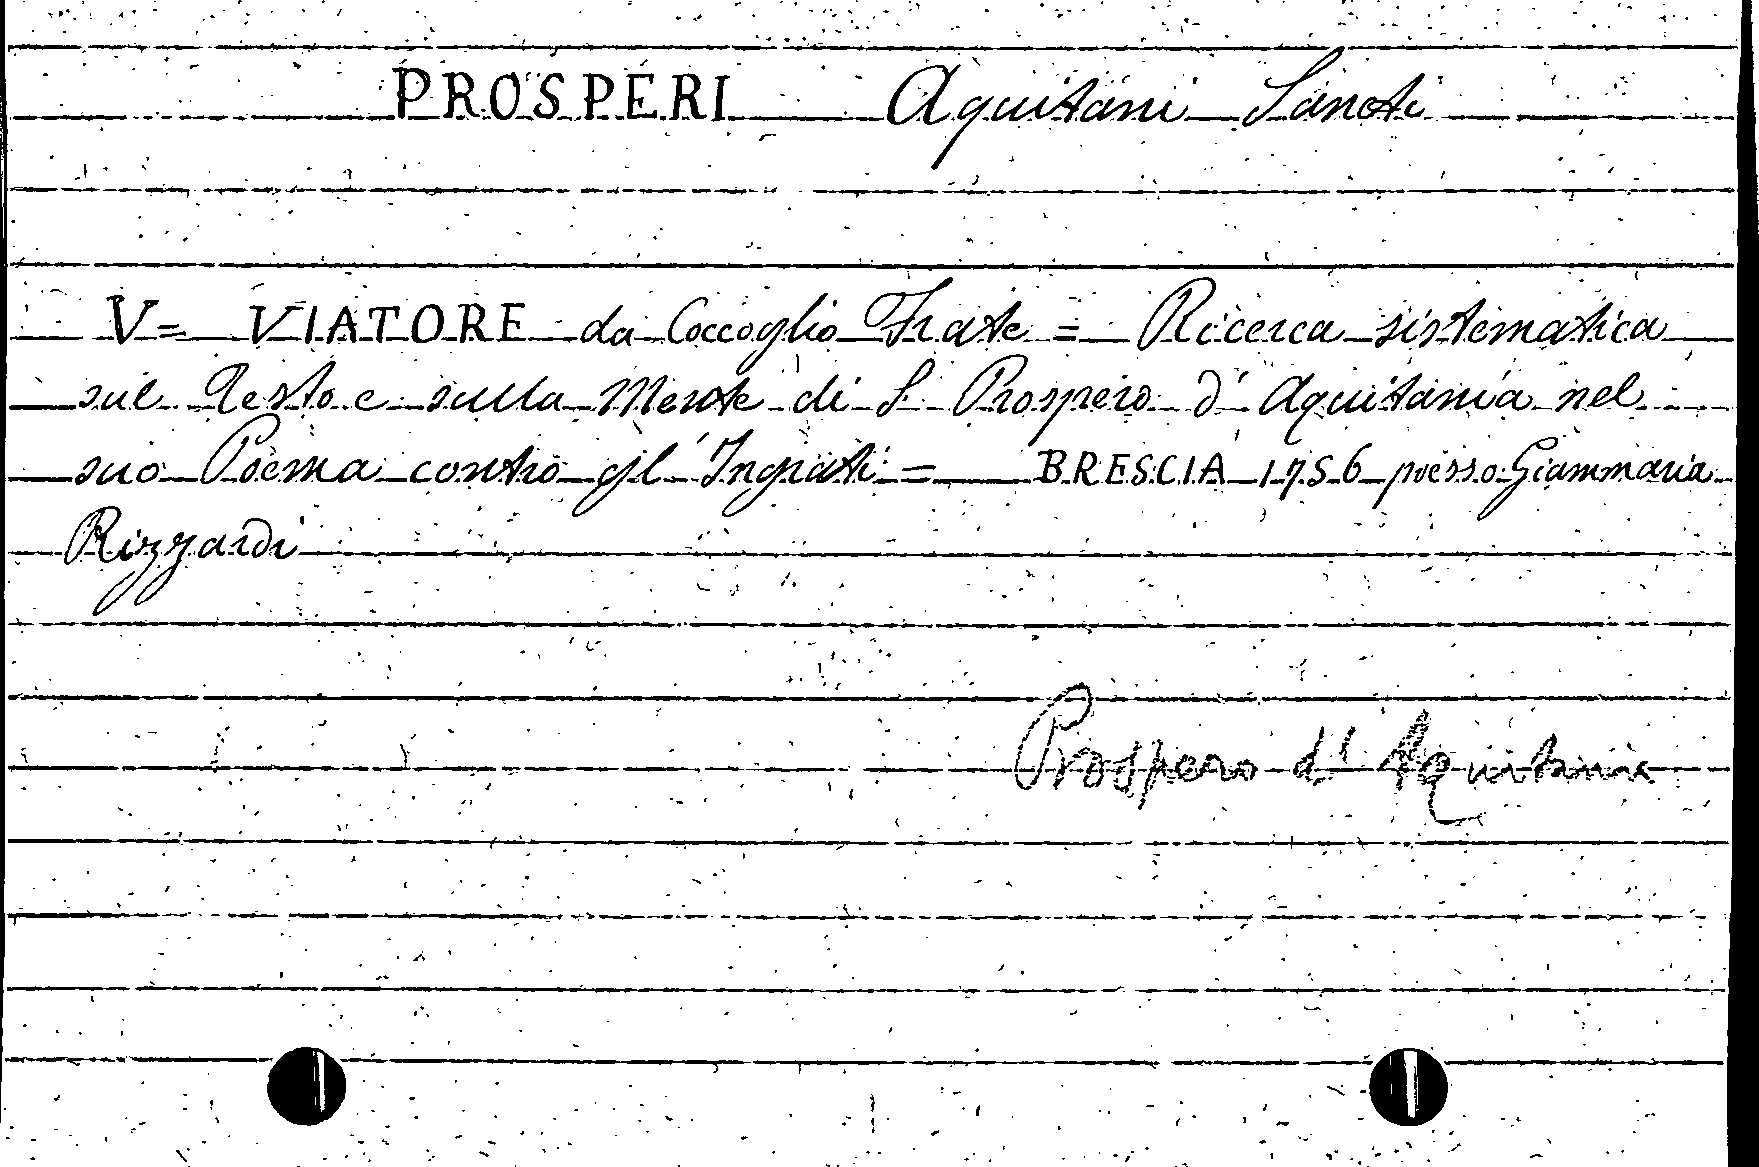 PROSPERI Aquitani Sancti
V= VIATORE da Coccoglio Frate = Ricerca sistematica
sul Testo e sulla Mente di S. Prospero d'Aquitania nel
suo Poema contro gl'Ingrati = BRESCIA 1756 presso Giammaria
Rizzardi
Prospero d'Aquitania